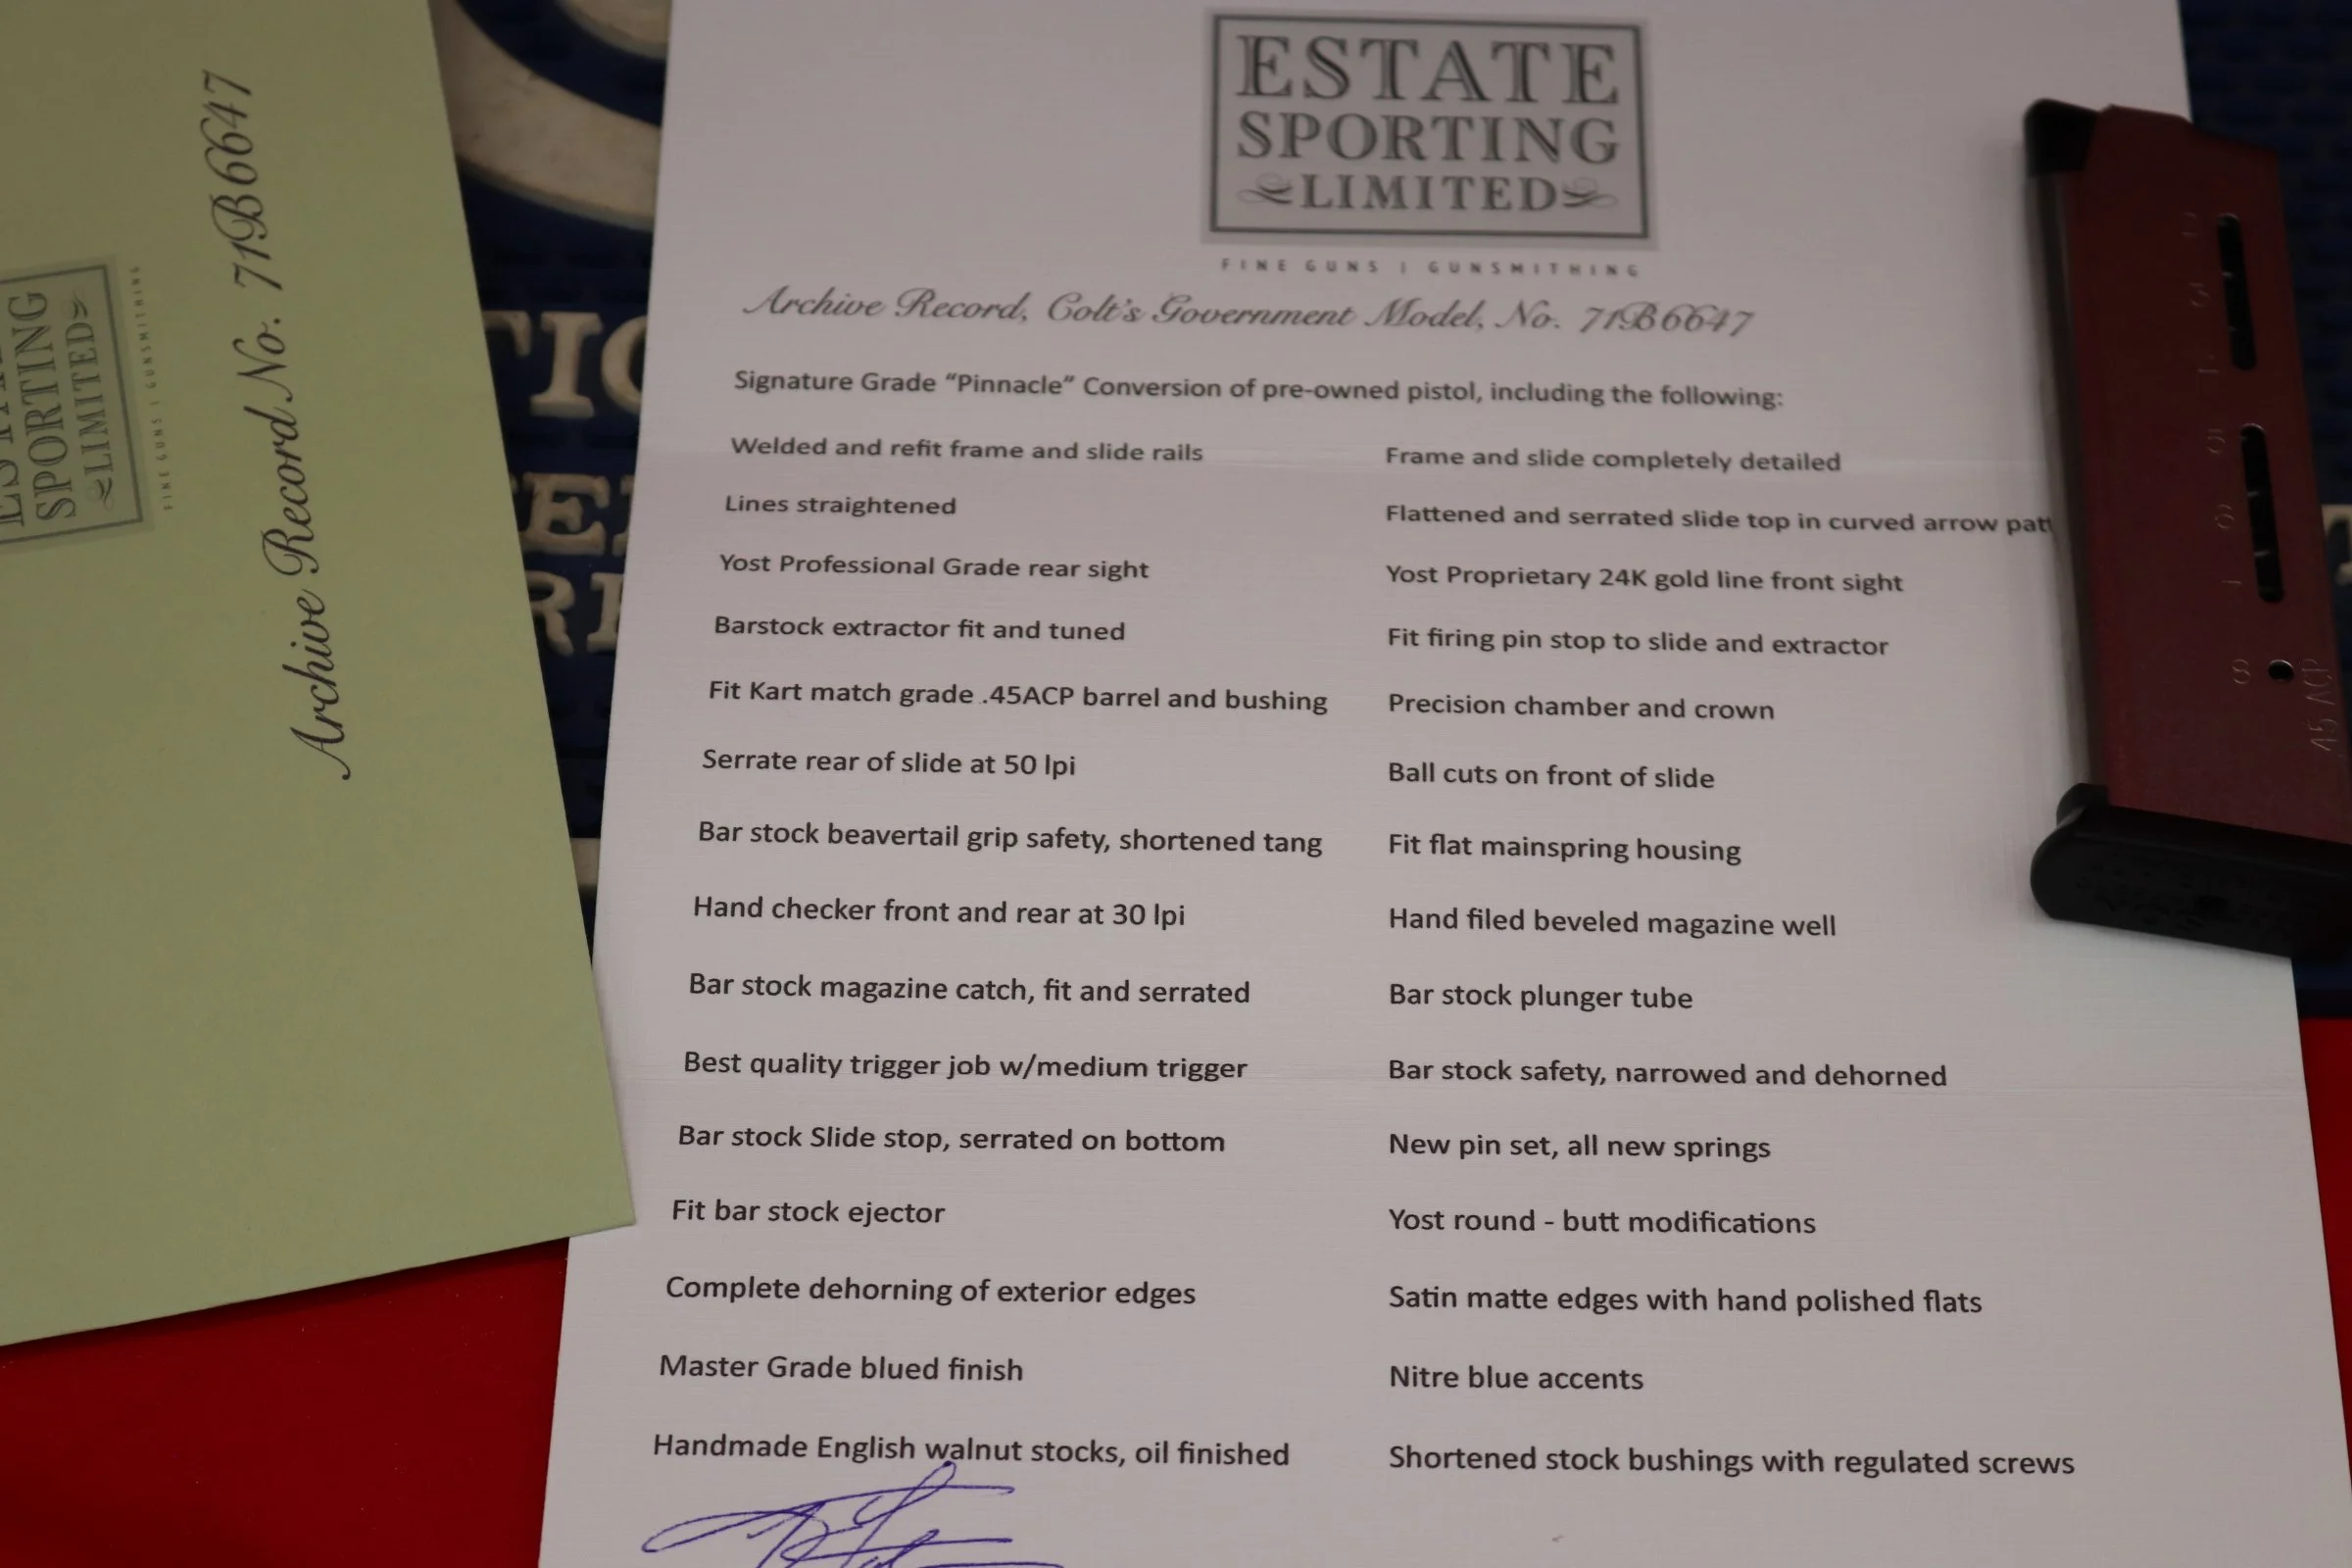 ESTATE
SPORTING
LIMITED
FINE GUNS | GUNSMITHING
Archive Record, Colt's Government Model, No. 71B6647
Signature Grade “Pinnacle” Conversion of pre-owned pistol, including the following:
Welded and refit frame and slide rails
Frame and slide completely detailed
Lines straightened
Flattened and serrated slide top in curved arrow patt
Yost Professional Grade rear sight
Yost Proprietary 24K gold line front sight
Barstock extractor fit and tuned
Fit firing pin stop to slide and extractor
Fit Kart match grade .45ACP barrel and bushing
Precision chamber and crown
Serrate rear of slide at 50 lpi
Ball cuts on front of slide
Bar stock beavertail grip safety, shortened tang
Fit flat mainspring housing
Hand checker front and rear at 30 lpi
Hand filed beveled magazine well
Bar stock magazine catch, fit and serrated
Bar stock plunger tube
Best quality trigger job w/medium trigger
Bar stock safety, narrowed and dehorned
Bar stock Slide stop, serrated on bottom
New pin set, all new springs
Fit bar stock ejector
Yost round - butt modifications
Complete dehorning of exterior edges
Satin matte edges with hand polished flats
Master Grade blued finish
Nitre blue accents
Handmade English walnut stocks, oil finished
Shortened stock bushings with regulated screws
Archive Record No. 71B6647
SPORTING
LIMITED
FINE GUNS | GUNSMITHING
8
45 ACP